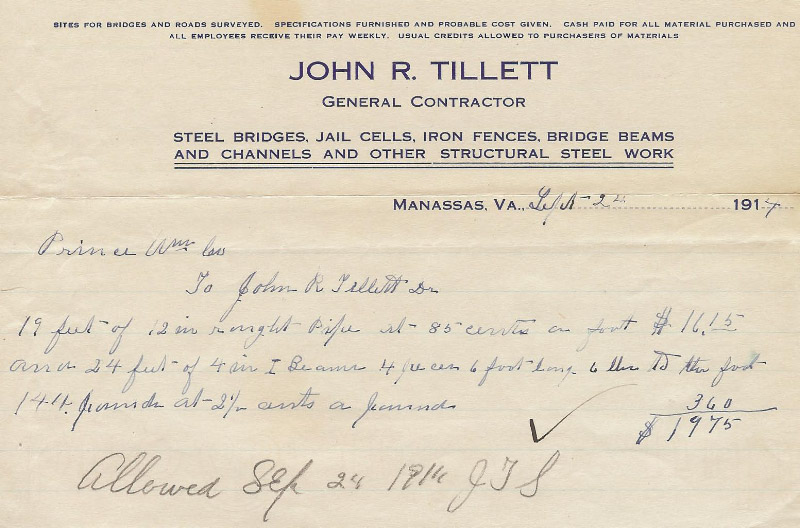 SITES FOR BRIDGES AND ROADS SURVEYED. SPECIFICATIONS FURNISHED AND PROBABLE COST GIVEN. CASH PAID FOR ALL MATERIAL PURCHASED AND
ALL EMPLOYEES RECEIVE THEIR PAY WEEKLY. USUAL CREDITS ALLOWED TO PURCHASERS OF MATERIALS
JOHN R. TILLETT
GENERAL CONTRACTOR
STEEL BRIDGES, JAIL CELLS, IRON FENCES, BRIDGE BEAMS
AND CHANNELS AND OTHER STRUCTURAL STEEL WORK
MANASSAS, VA., Sept 24 1914
Prince Wm Co
To John R Tillett Dr
19 feet of 12 in rought Pipe at 85 cents a foot $16.15
and 24 feet of 4 in I Beams 4 peces 6 foot long 6 lbs to the foot
144 pounds at 2½ cents a pound 360
$1975
Allowed Sep 24 1914 JTS